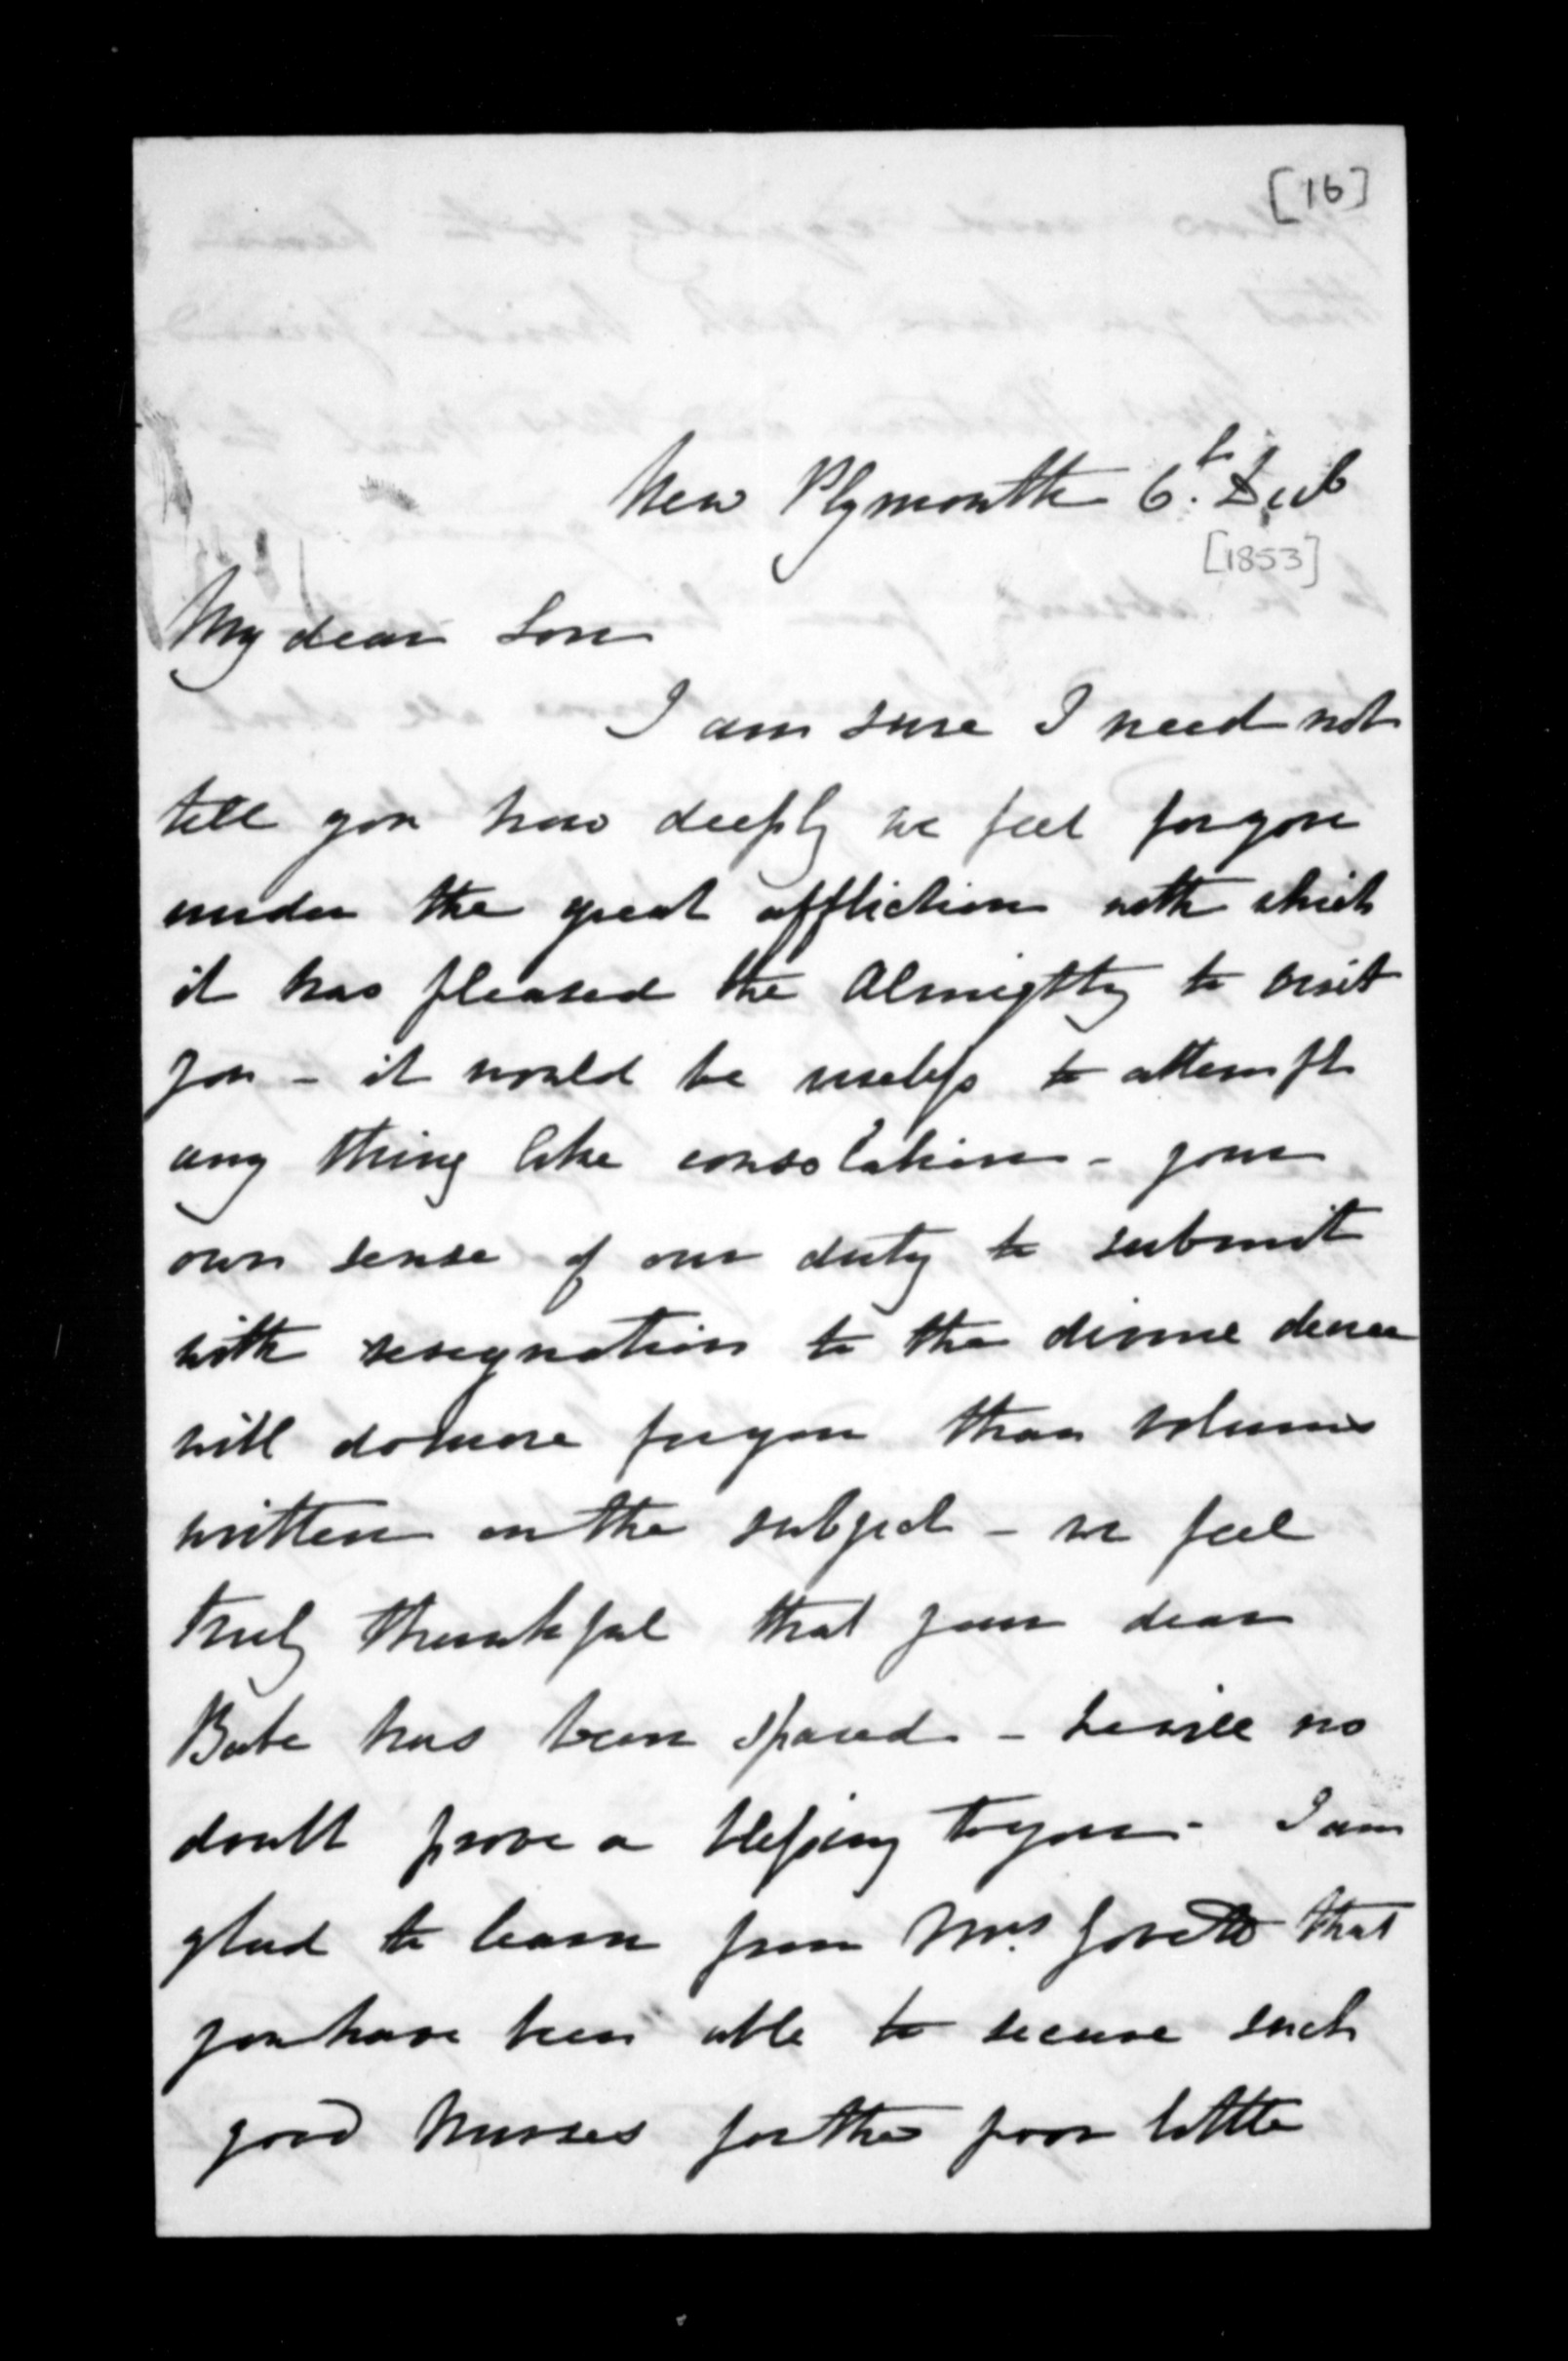 [16]
New Plymouth 6th. Decb
[1853]
My dear Son
I am sure I need not
tell you how deeply we feel for you
under the great affliction with which
it has pleased the Almighty to visit
you - it would be useless to attempt
any thing like consolation - your
own sense of our duty to submit
with resignation to the divine decree
will do more for you than volumes
written on the subject - we feel
truly thankful that your dear
Babe has been spared - he will no
doubt prove a blessing to you - I am
glad to learn from Mrs. that
you have been able to secure such
good Nurses for the poor little